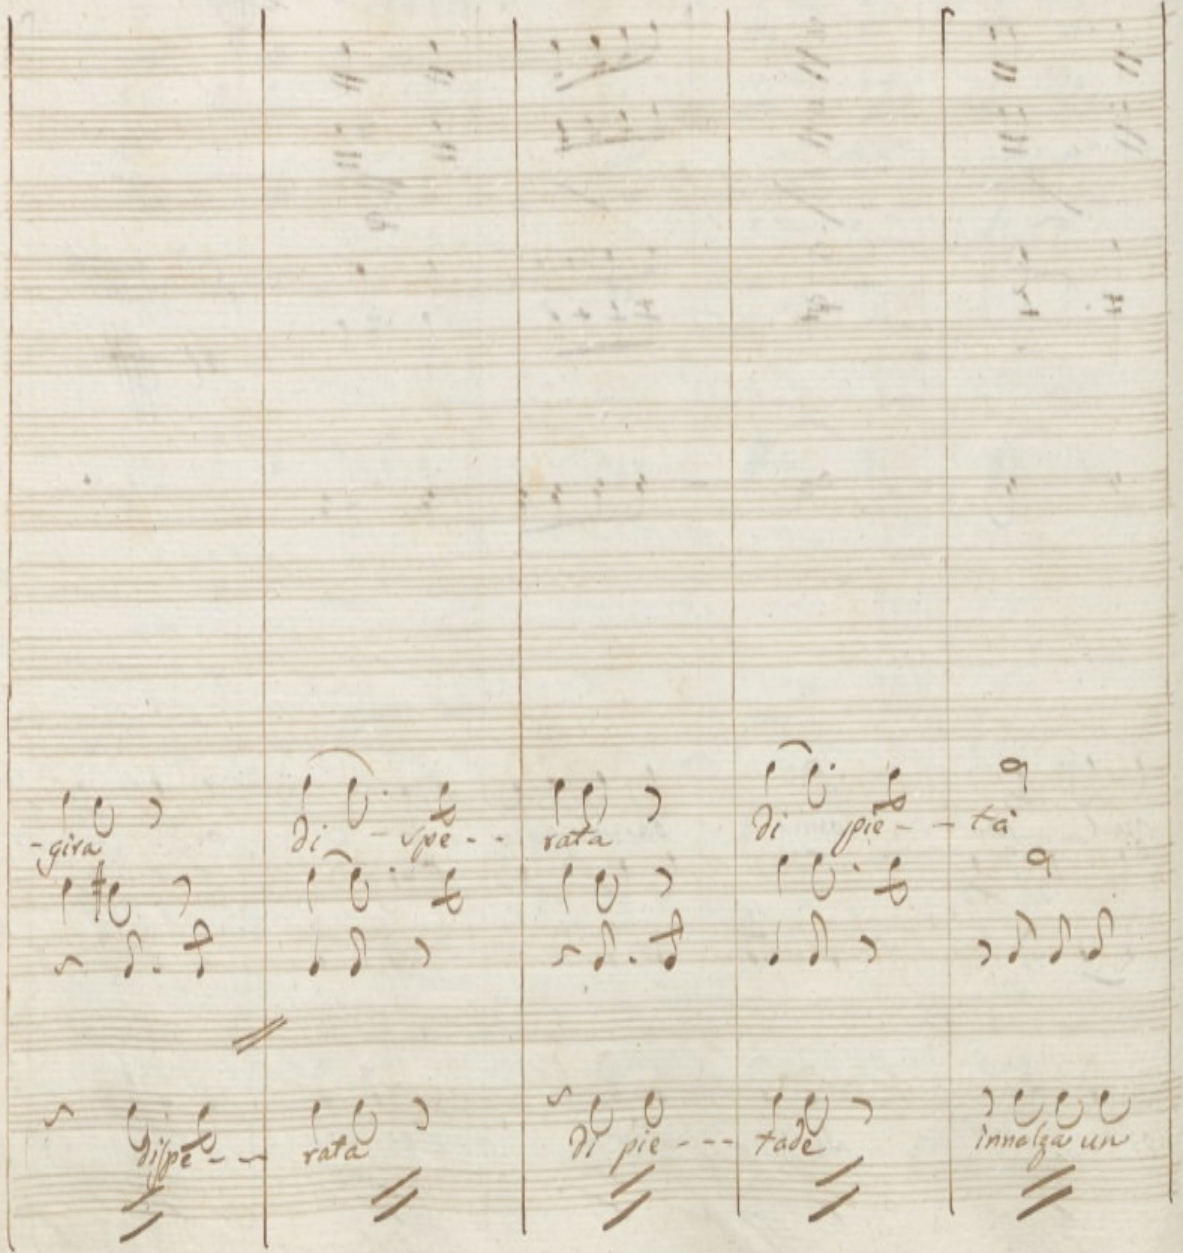 -gira di - spe - - rata di pie - - tà
dispe - - - rata di pie - - - tade innalza un